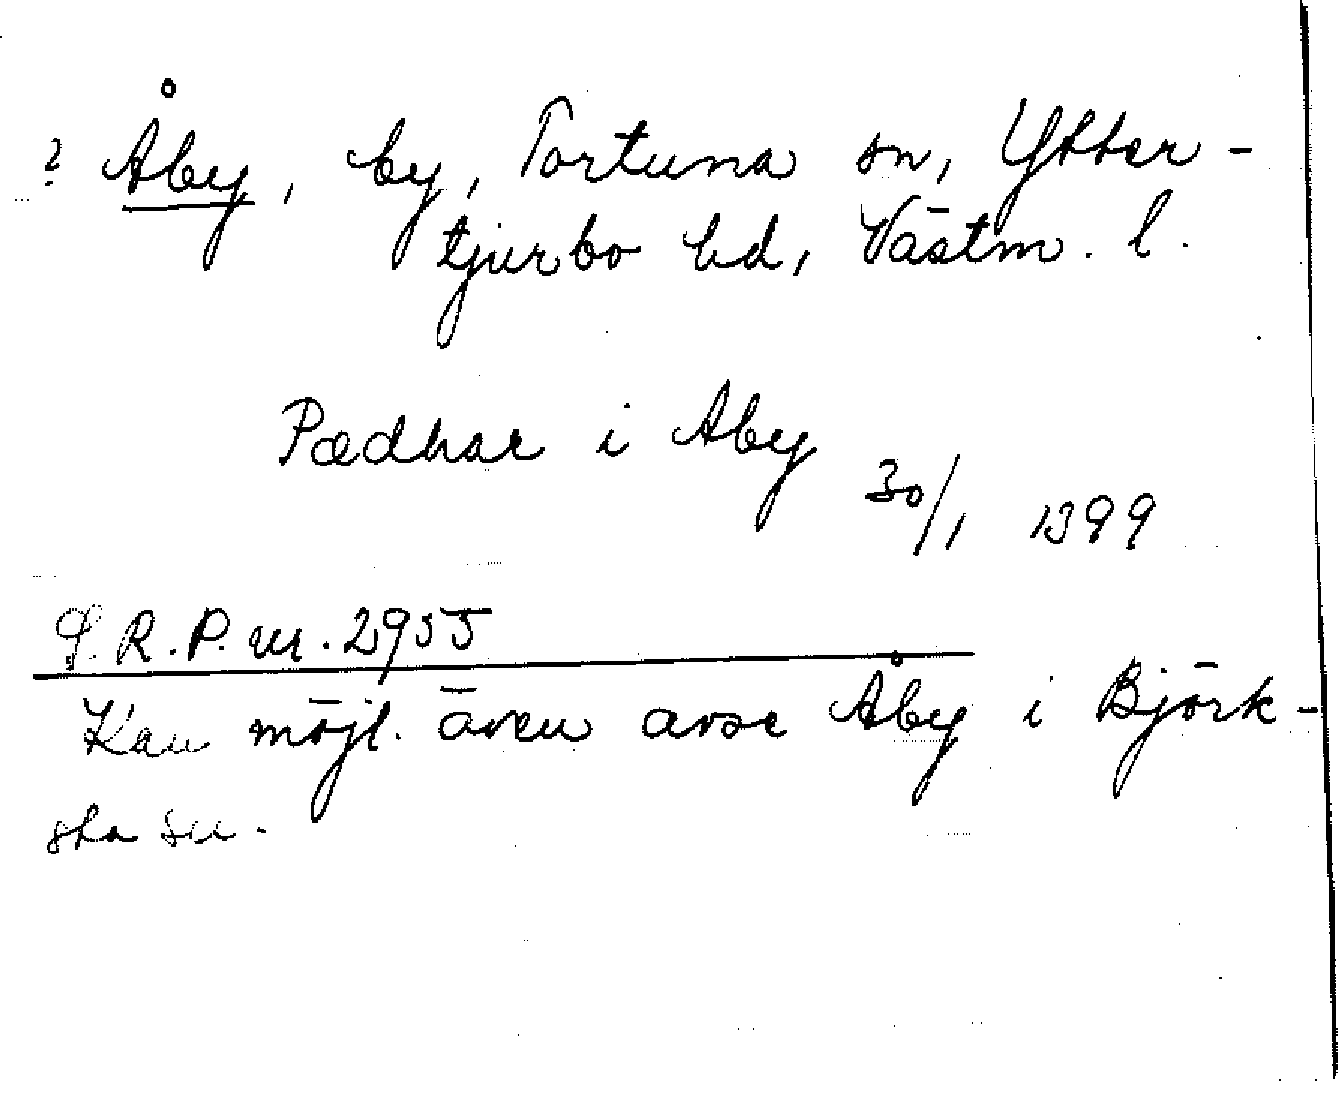 ? Åby, by, Tortuna sn, Ytter-
tjurbo hd, Västm. l.
Pædhar i Aby
30/1 1399
S. R. P. nr. 2955
Kan möjl. även avse Åby i Björk-
sta sn.